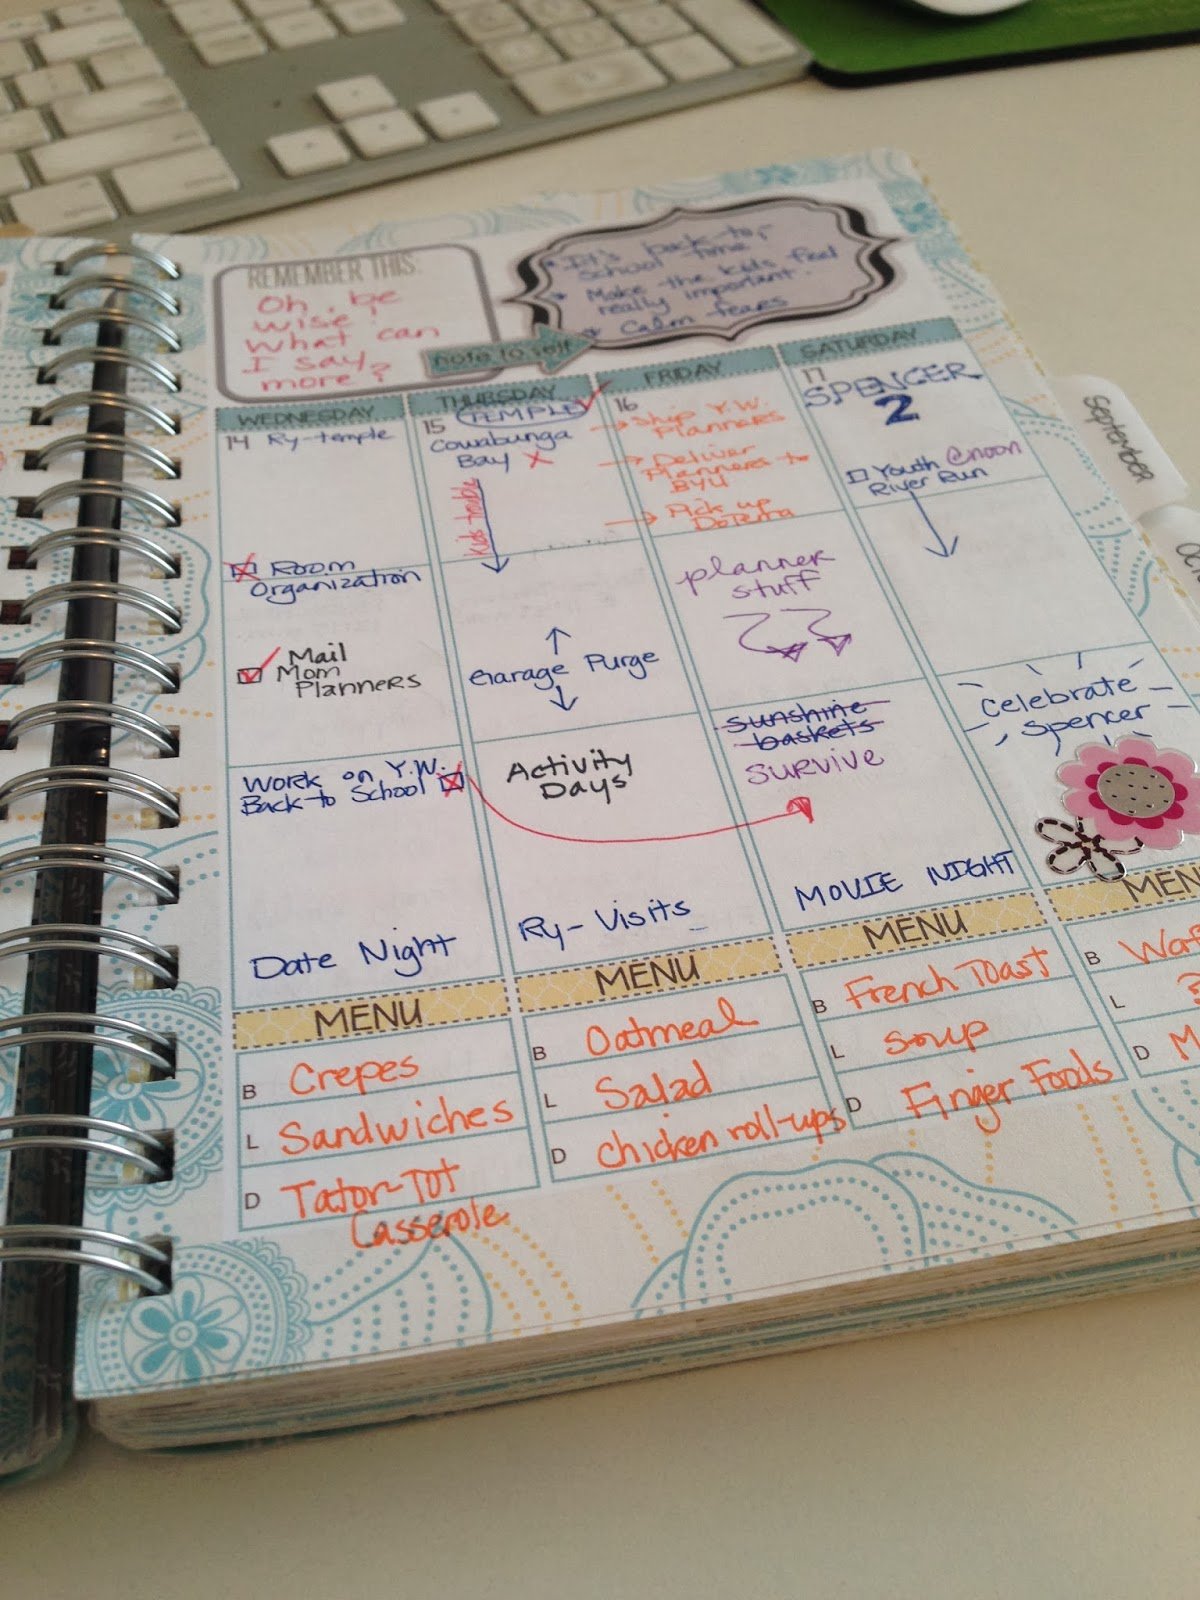 REMEMBER THIS:
Oh, be
wise;
What can
I say
more?
note to self
It's back-to-
School time
Make the kids feel
really important.
Calm fears
WEDNESDAY
14 Ry-temple
Room
Organization
Mail
Mom
Planners
Work on Y.W.
Back-to School
Date Night
MENU
B Crepes
L Sandwiches
D Tator-Tot
Casserole
THURSDAY
TEMPLE
15
Cowabunga
Bay
Garage Purge
Activity
Days
Ry-Visits
MENU
B Oatmeal
L Salad
D Chicken roll-ups
FRIDAY
16
Ship Y.W.
Planners
Deliver
Planners to
BYU
Pick up
DoTerra
planner
stuff
sunshine
baskets
survive
MOVIE NIGHT
MENU
B French Toast
L Soup
D Finger Foods
SATURDAY
17
SPENCER
2
Youth @noon
River Run
Celebrate
Spencer
MEN
B Waf
L
D M
September